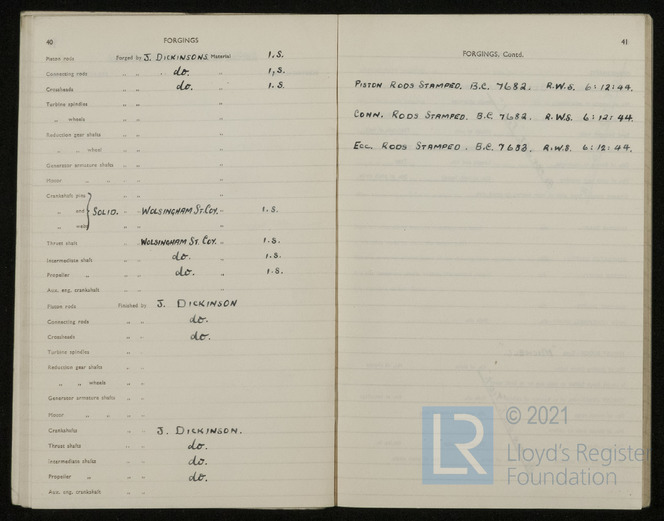 40
FORGINGS
Piston rods Forged by J. DICKINSONS. Material I.S.
Connecting rods " " do. " I,S.
Crossheads " " do. " I.S.
Turbine spindles " " "
" wheels " " "
Reduction gear shafts " " "
" " wheel " " "
Generator armature shafts " " "
Motor " " " " "
Crankshaft pins
" and SOLID. " WOLSINGHAM ST. COY. " I.S.
" webs
Thrust shaft " WOLSINGHAM ST. COY. " I.S.
Intermediate shaft " " do. " I.S.
Propeller " " " do. " I.S.
Aux. eng. crankshaft " " "
Piston rods Finished by J. DICKINSON
Connecting rods " " do.
Crossheads " " do.
Turbine spindles " "
Reduction gear shafts " "
" " wheels " "
Generator armature shafts " "
Motor " " " "
Crankshafts " " J. DICKINSON.
Thrust shafts " " do.
Intermediate shafts " " do.
Propeller " " " do.
Aux. eng. crankshaft " "
41
FORGINGS, Contd.
PISTON RODS STAMPED. B.C. 7682. R.W.S. 6:12:44.
CONN. RODS STAMPED. B.C. 7682. R.W.S. 6:12:44.
ECC. RODS STAMPED. B.C. 7682. R.W.S. 6:12:44.
LR
© 2021
Lloyd's Register
Foundation